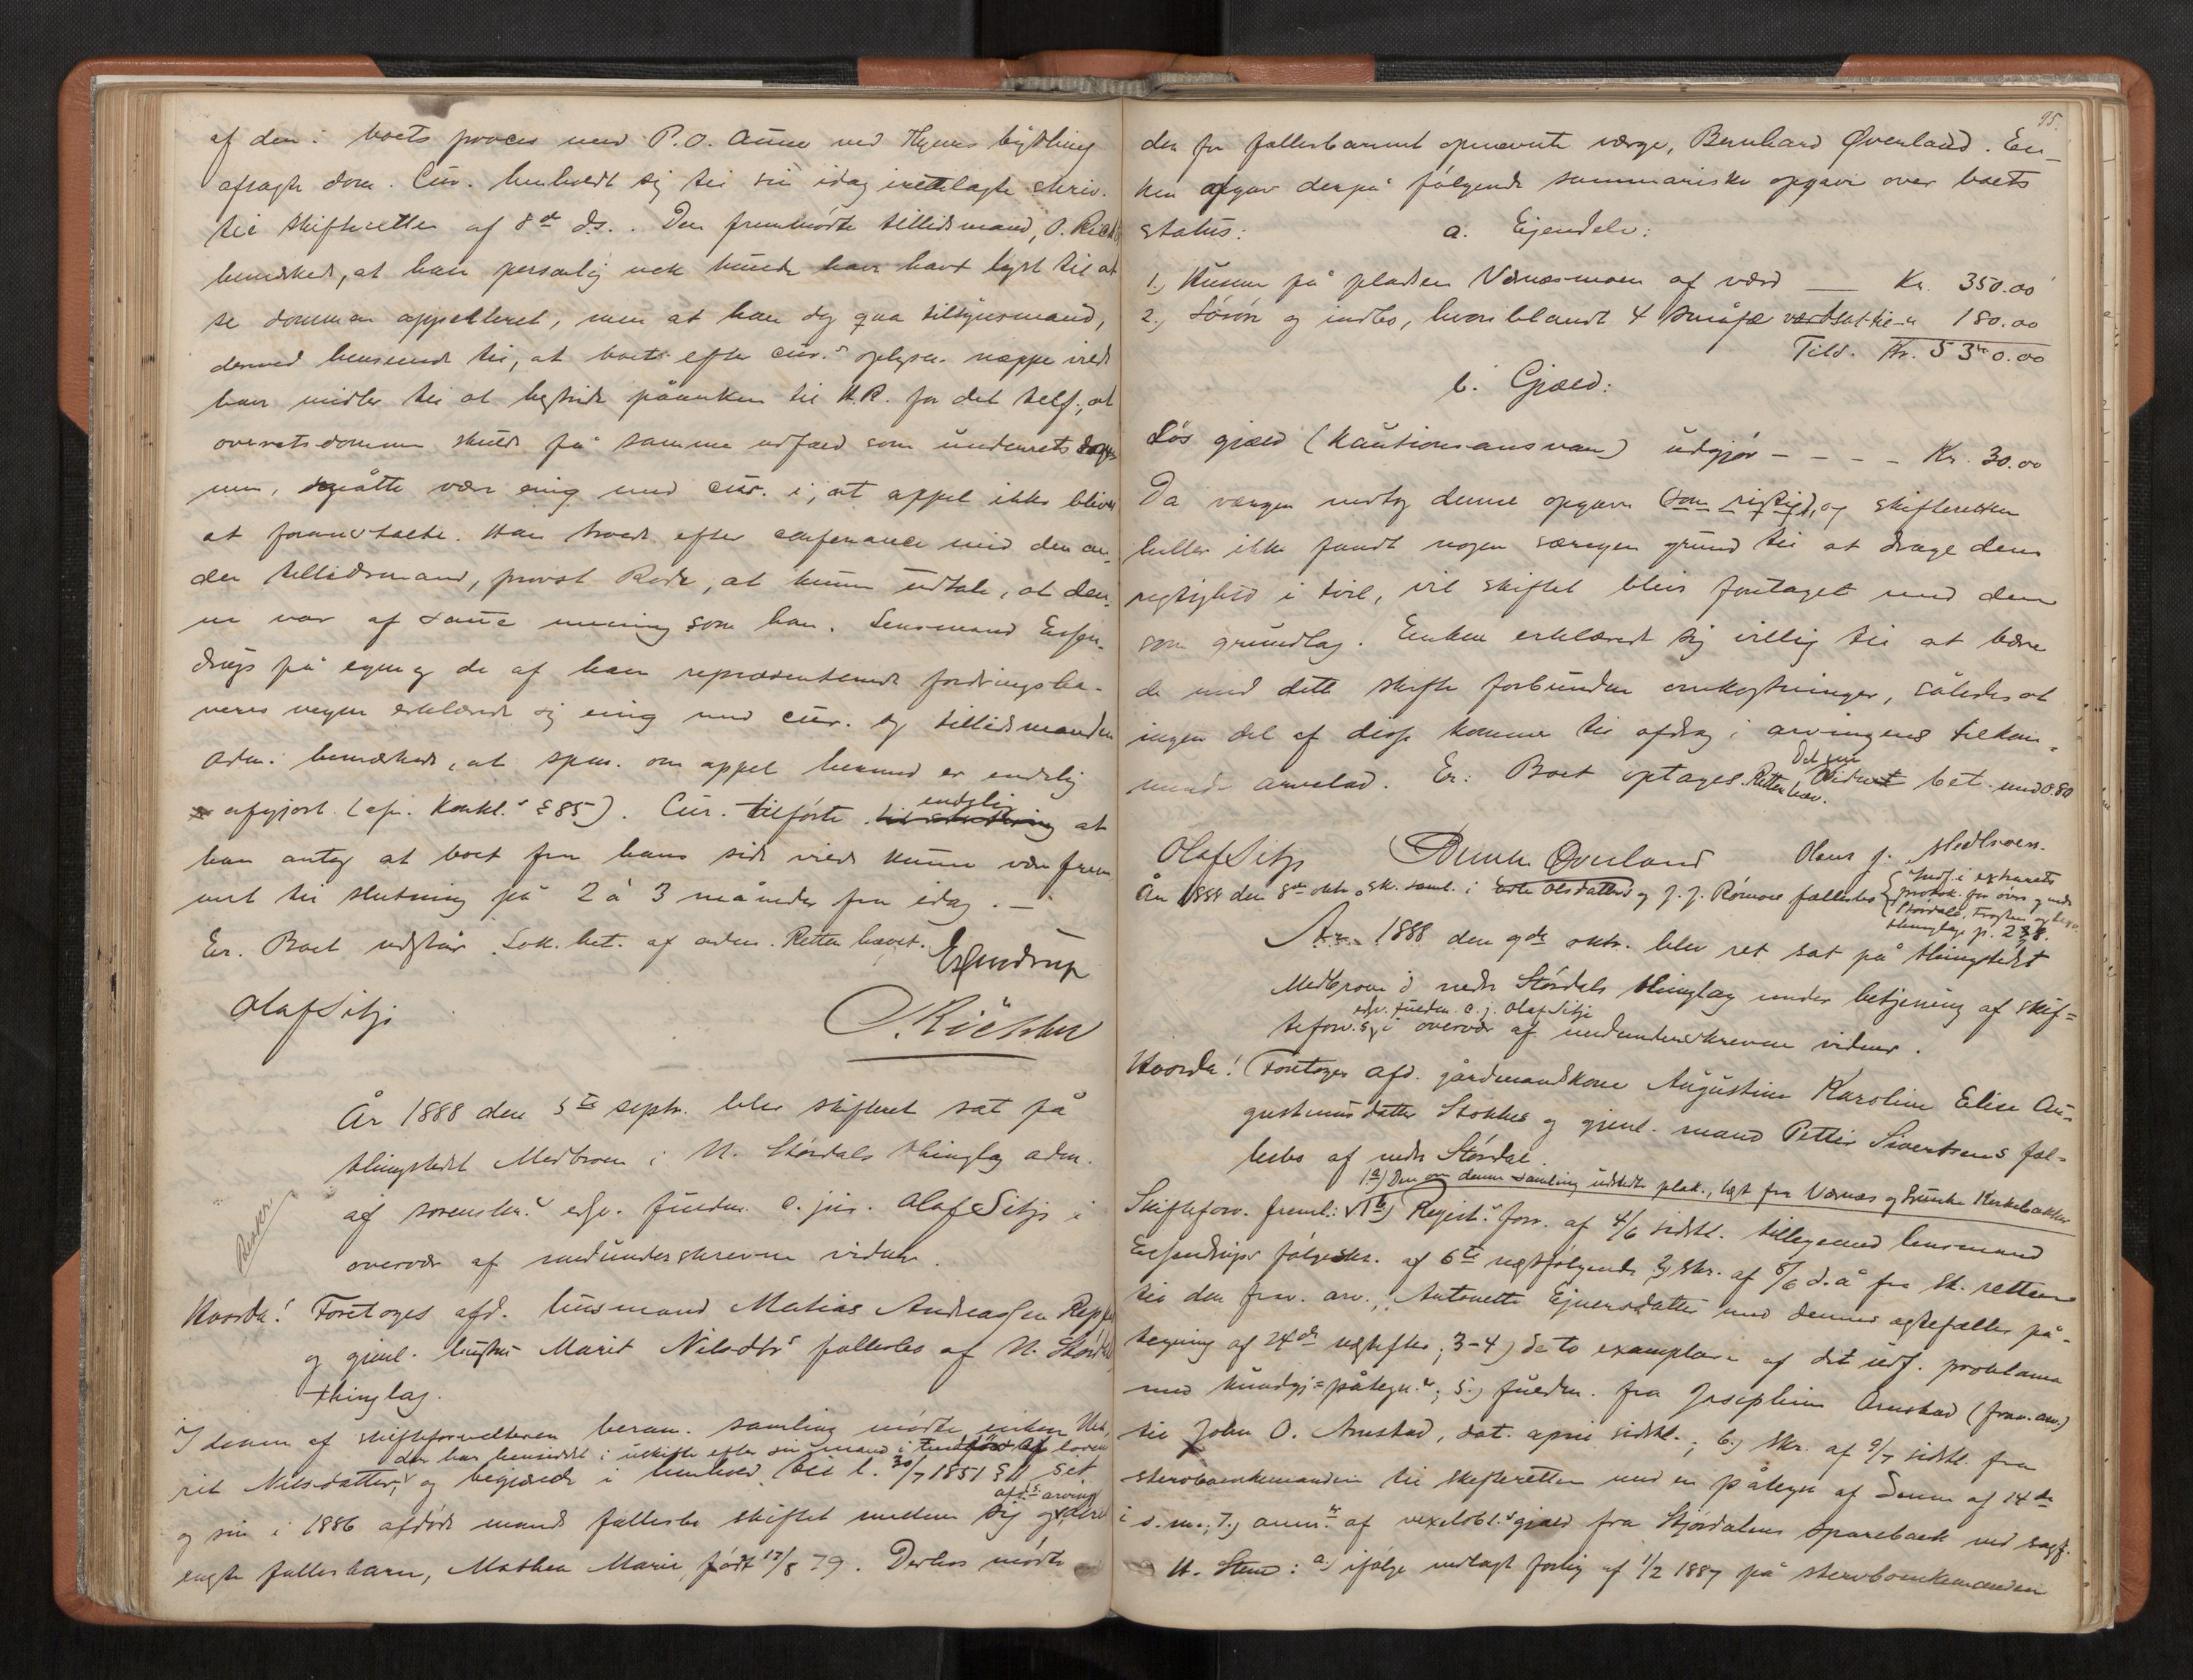 af den i boets proces med P. O. Aune ved Hegres bygthing
afsagte dom. Cur. henholdt sig til sin idag irettelagte skriv.
til skifteretten af 8de ds. Den fremmødte tillidsmand, O. Richter
bemærkede, at han personlig nok kunde have havt lyst til at
se dommen appelleret, men at han dog qua tilsynsmand,
derved henseende til, at boet efter cur.s oplysn. neppe vilde
have midler til at bestride påanken til H.R. for det tilf., at
overretsdommen skulde få samme udfald som underretsdom-
men, måtte være enig med cur. i, at appel ikke bliver
at foranstalte. Han troede efter conferance med den an-
den tillidsmand, provst Rode, at kunne udtale, at den-
ne var af samme mening som han. Lensmand Essen-
drups på egne og de af ham repræsenterede fordringsha-
veres vegne erklærede sig enig med cur. og tillidsmanden
Adm. bemærkede, at spm. om appel hermed er endelig
afgjort (cfr. konkl.s § 85). Cur. tilførte endelig at
han antog at boet fra hans side vilde kunne være frem-
met til slutning på 2 à 3 måneder fra idag. —
Er. Boet udstår. Sek. bet. af adm. Retten hævet.
Essendrup
Olaf Sitje
O. Richter
År 1888 den 5te septr. blev skifteret sat på
thingstedet Medbroen i N. Størdals thinglag adm.
af sorenskr.s edsv. fuldm. c. jur. Olaf Sitje i
overvær af medunderskrevne vidner.
Hvorda! Foretoges afd. husmand Matias Andreassen
og gjenl. hustru Marit Nilsdtr.s fællesbo af N. Størdals
thinglag.
I denne af skifteforvalteren beram. samling mødte enken Ma-
der har hensiddet i uskifte efter sin mand i loven
rit Nilsdatter, og begjærede i henhold til l. 30/7 1851 § 11
afd.s arving
og sin i 1886 afdøde mands fællesbo skiftet mellem sig og deres
eneste fællesbarn, Mathea Marie, født 17/8 79. Derhos mødte
95.
den for fællesbarnet opnævnte værge, Bernhard Øverland. En-
ken opgav derpå følgende summariske opgave over boets
status:
a. Ejendele:
1.) Husene på pladsen Værnesmoen af værd — Kr. 350.00
2.) Løsøre og indbo, hvoriblandt 4 småfæ værdsat til - " 180.00
Tils. Kr. 530.00
b. Gjæld:
Løs gjæld (kautionsansvar) udgjør - - - - Kr. 30.00
Da værgen vedtog denne opgave (som rigtig), og skifteretten
heller ikke fandt nogen særegen grund til at drage dens
rigtighed i tvil, vil skiftet blive foretaget med den
som grundlag. Enken erklærede sig villig til at bære
de med dette skifte forbundne omkostninger, således at
ingen del af disse kommer til afdrag i arvingens tilkom-
mende arvelod. Er: Boet optages. Retten hæv. Vidnet bet. med 0.80
Olaf Sitje Bernh. Øverland Olaus J. Medbroen.
År 1888 den 8de oktr. sk. saml. i Olsdatters og J. J. Rømoes fællesbo
{ Indf. i extrarets
protok. for øvre og nedre
Størdals, Frosten og
thinglage p. 238.
År 1888 den 9de oktr. blev ret sat på thingstedet
Medbroen i nedre Størdals thinglag under betjening af skif-
edsv. fuldm. c. j. Olaf Sitje
teforv.s, i overvær af medunderskrevne vidner.
Hvorda! Foretoges afd. gårdmandskone Augustine Karoline Elise Au-
gustinusdatter Stokkes og gjenl. mand Petter Sivertsens fæl-
lesbo af nedre Størdal.
1a) Den om denne samling udstedte plak., læst fra Værnes og Kirkebakker
Skifteforv. freml: 1b) Regist.s forr. af 4/6 sidstl. tilligemed lensmand
Essendrups følgeskr. af 6te næstfølgende; 2) skr. af 8/6 d. å. fra sk. retten
til den frav. arv., Antonette Ejnersdatter med dennes ægtefælles på-
tegning af 24de næstefter; 3-4) de to exemplarer af det udf. proklama
med kundgj.-påtegn.r; 5.) fuldm. fra Josephine Arnstad (frav. arv.)
til John O. Arnstad, dat. april sidstl.; 6.) skr. af 9/7 sidstl. fra
stervboenkemanden til skifteretten med en påtegn. af denne af 14de
i s. m.; 7.) anm. af vexelobl.s gjæld fra Stjørdalens sparebank ved sagf.
H. Steen: a.) ifølge vedlagt forlig af 1/2 1887 på stervboenkemanden